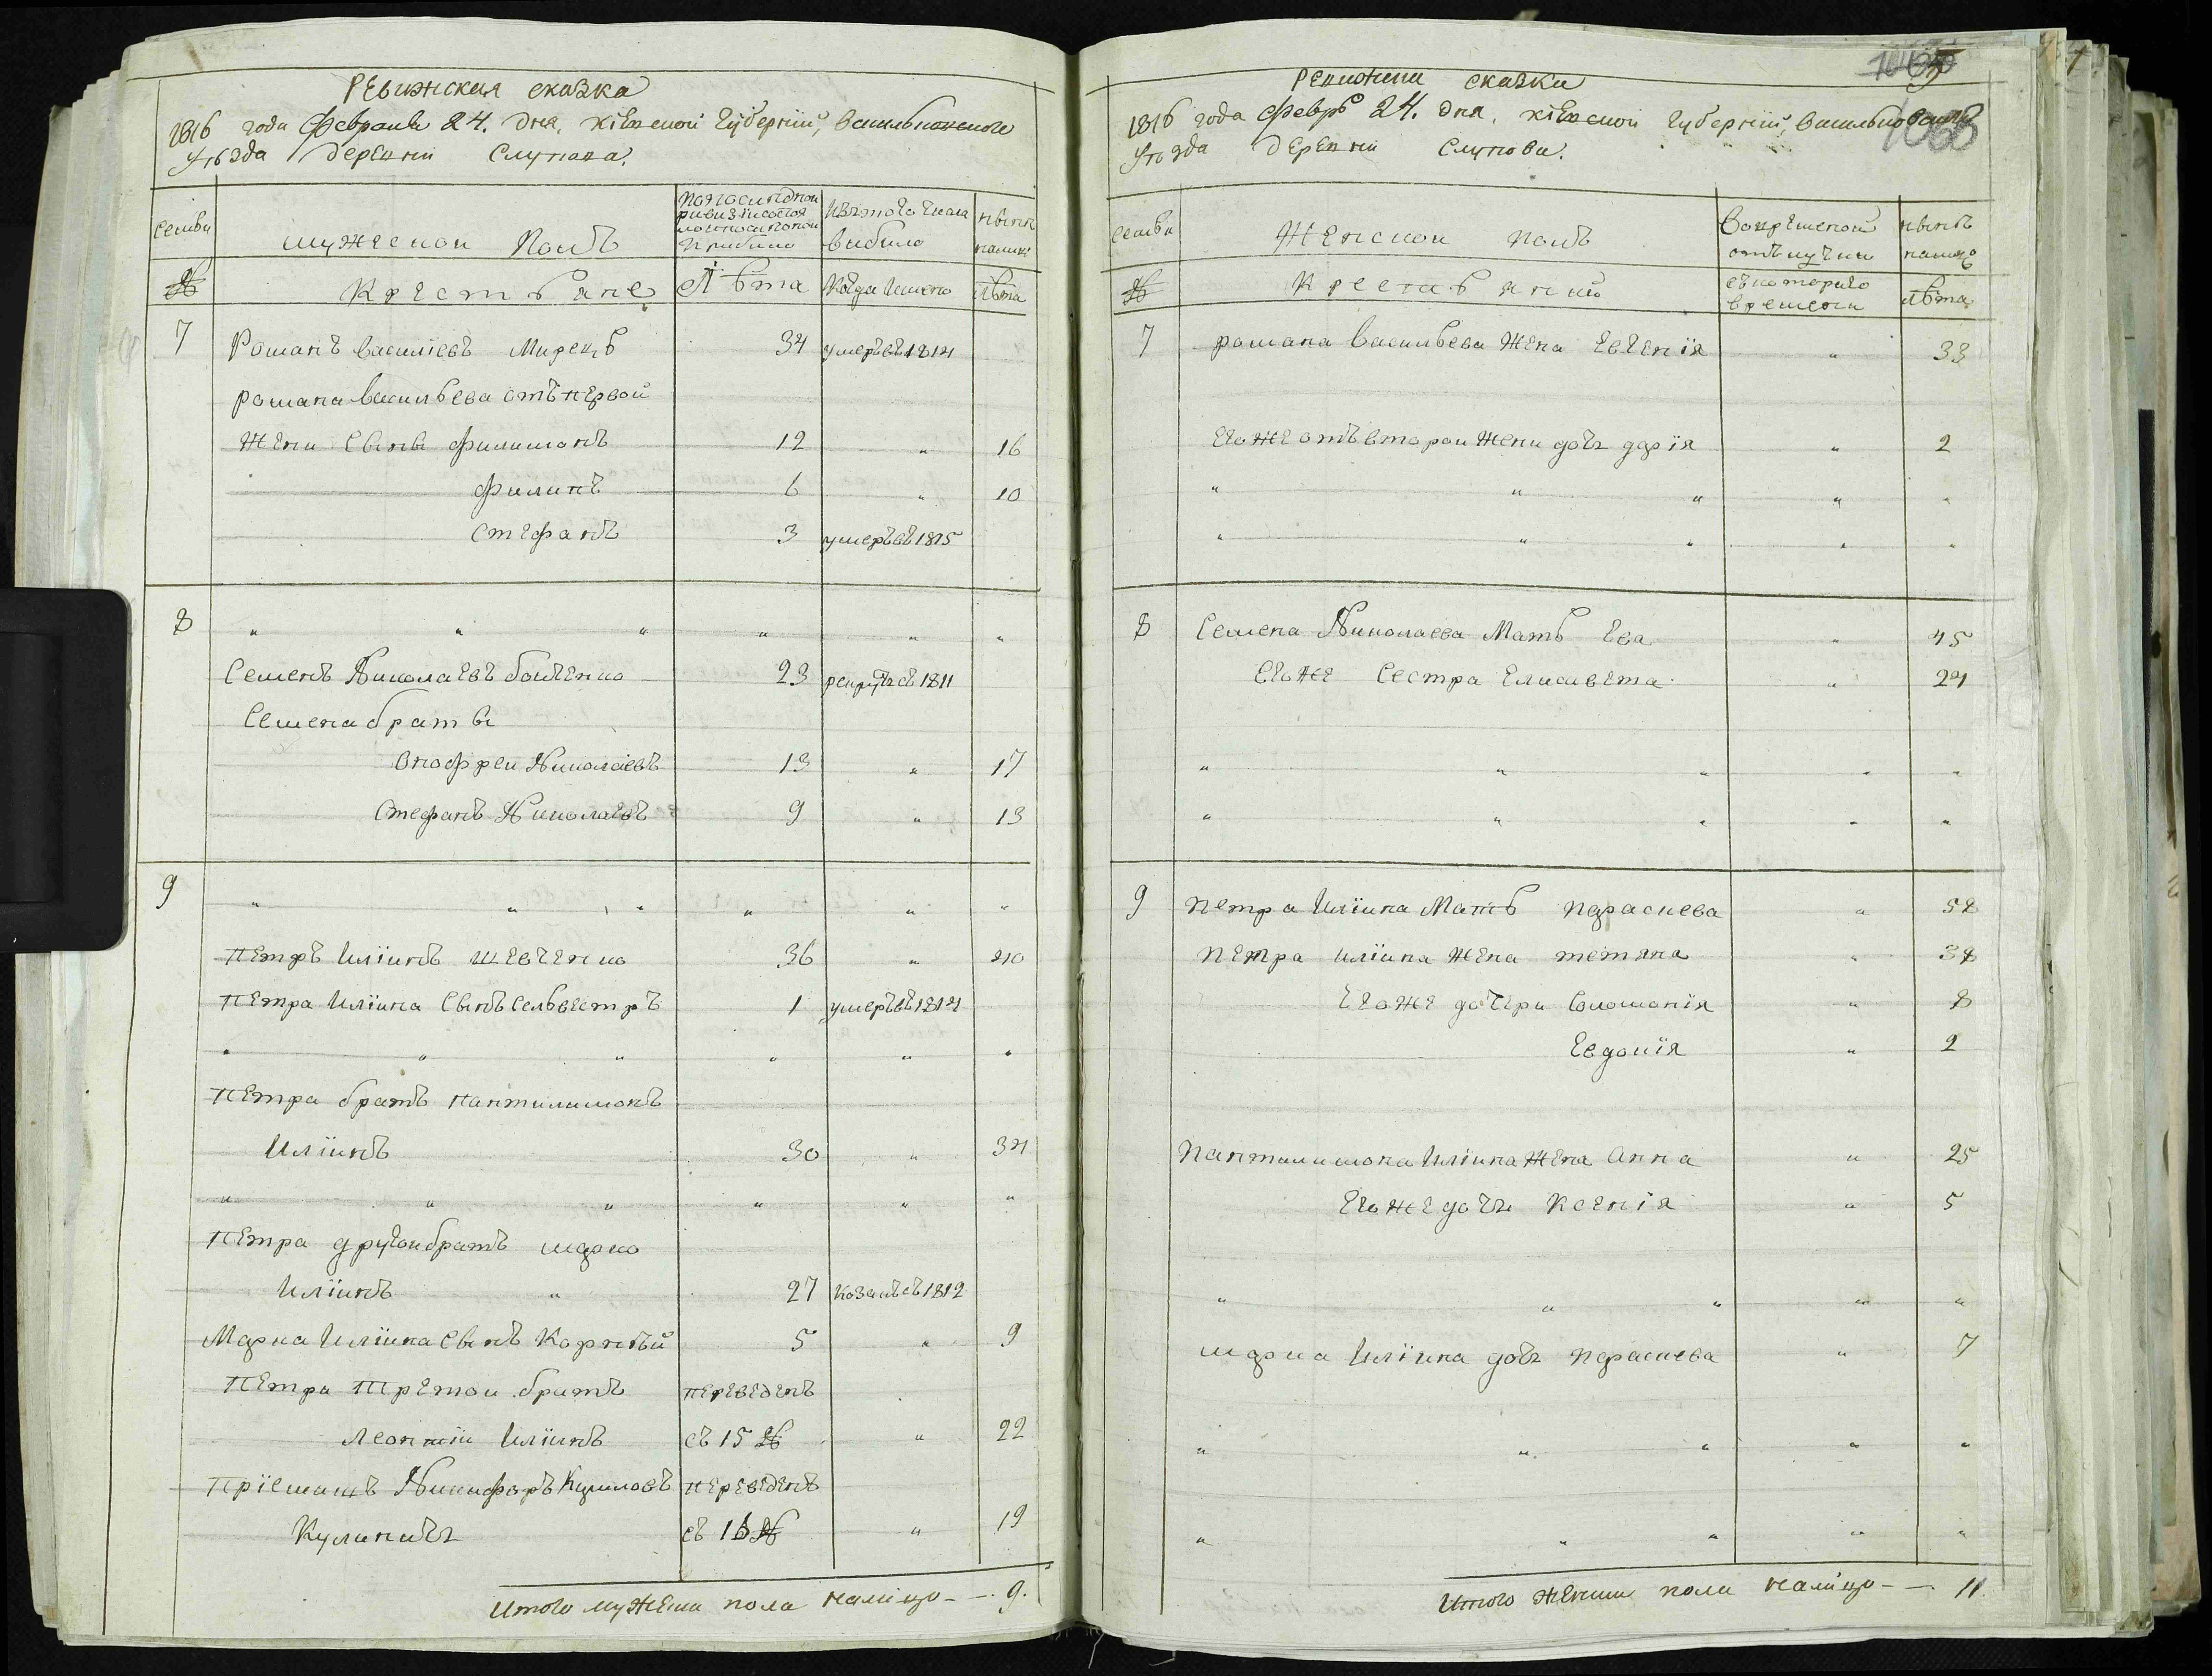 Ревизская сказка
1816 года Февраля 24. дня, Кіевской губерніи, Васильковского
уѣзда деревни
семьи
Мужеской Полъ
выбыло
нынѣ
№
Крестьяне
Лѣта
Когда именно
лѣта
7 Романъ Василіевъ Мирецъ 34 умеръ въ 1814
Романа Васильева отъ первой
жены сыны Филимонъ 12 „ 16
Филипъ 6 „ 10
Стефанъ 3 умеръ въ 1815
8 „ „ „ „ „ „
Семенъ Николаевъ 23 1811
Семена братья
Онофрей Николаевъ 13 „ 17
Стефанъ Николаевъ 9 „ 13
9 „ „ „ „ „ „
Петръ Иліинъ Шевченко 36 „ 40
Петра Иліина сынъ Сельвестръ 1 умеръ въ 1814
„ „ „ „ „ „
Петра братъ Пантилимонъ
Иліинъ 30 „ 34
„ „ „ „ „ „
Петра другой братъ Марко
Иліинъ „ 27 1812
Марка Иліина сынъ Корнѣй 5 „ 9
Петра третои братъ переведенъ
Леонтій Иліинъ съ 15 № „ 22
Пріемышъ Никифоръ переведенъ
съ 16 № „ 19
Итого мужеска пола налицо — 9.
Ревизская сказка
1816 года Февр 24. дня, Кіевской губерніи, Васильковского
уѣзда деревни
1066
семьи
Женской полъ
Во временной
отлучки
нынѣ
налицо
№
Крестьянки
съ которого
времени
лѣта
7 Романа Васильева жена Евгенія „ 33
Его же отъ второй жены дочь Дарія „ 2
„ „ „ „ „
„ „ „ „ „
8 Семена Николаева Мать Ева „ 45
Его же сестра Елисавета „ 24
„ „ „ „ „
„ „ „ „ „
9 Петра Иліина Мать Параскева „ 58
Петра Иліина жена Тетяна „ 38
Его же дочери Соломонія „ 8
Евдокія „ 2
Пантилимона Иліина жена Анна „ 25
Его же дочь Ксенія „ 5
„ „ „ „ „
Марка Иліина дочь Параскева „ 7
„ „ „ „ „
„ „ „ „ „
Итого женска пола налицо — 11